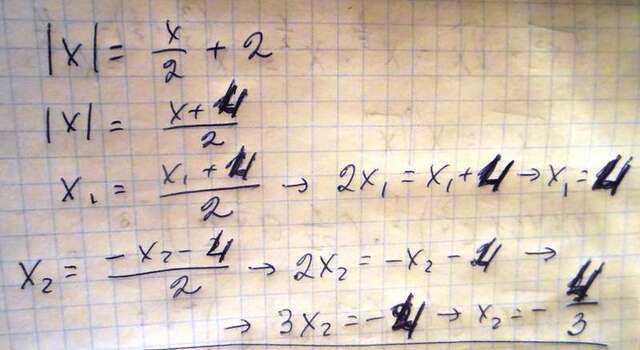 |x| = x/2 + 2
|x| = (x+4)/2
x₁ = (x₁+4)/2 → 2x₁ = x₁+4 → x₁ = 4
x₂ = (-x₂-4)/2 → 2x₂ = -x₂ - 4 →
→ 3x₂ = -4 → x₂ = -4/3